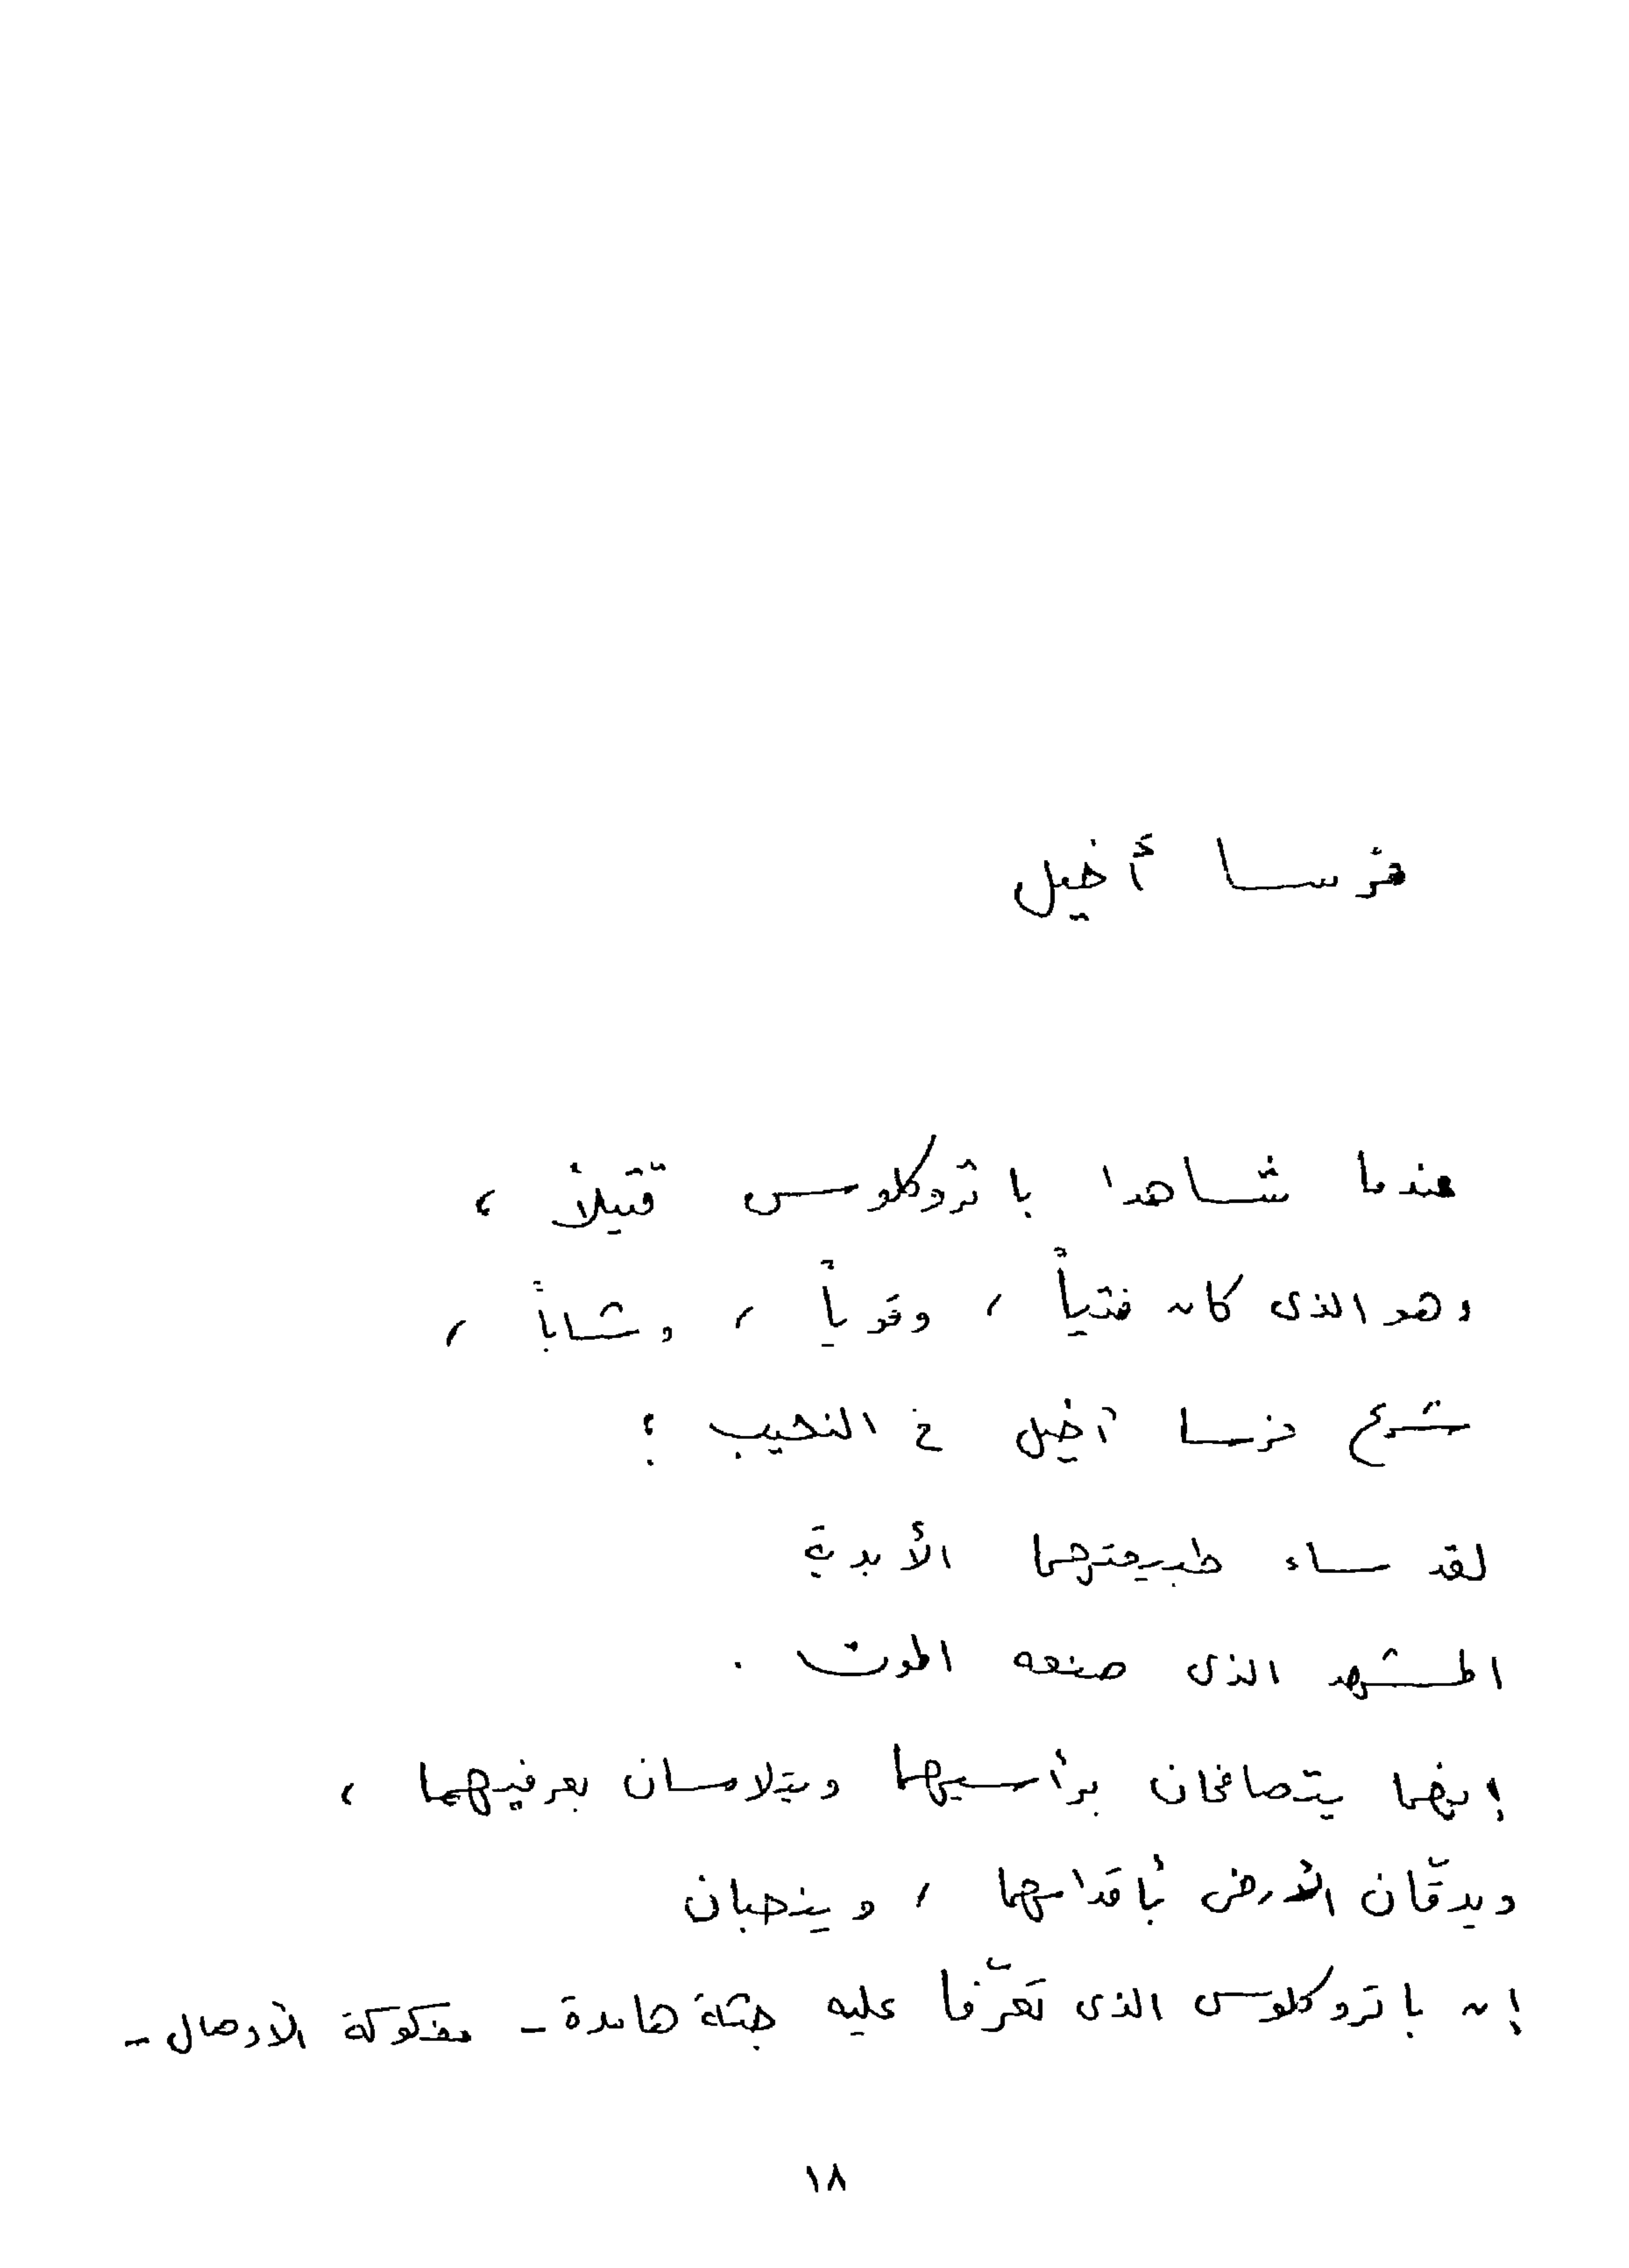 فرسا أخيل
عندما شاهدا باتروكلوس قتيلاً ،
وهو الذى كان فتياً ، وقوياً ، وشاباً ،
شرع فرسا آخيل فى النحيب ؛
لقد ساء طبيعتهما الأبدية
المشهد الذى صنعه الموت .
إنهما يتصافحان برأسيهما ويتلامسان بعرفيهما ،
ويدقّان الأرض بأقدامهما ، وينحبان
إن باتروكلوس الذى تعرّفا عليه جثة هامدة - مفكوكة الأوصال -
١٨